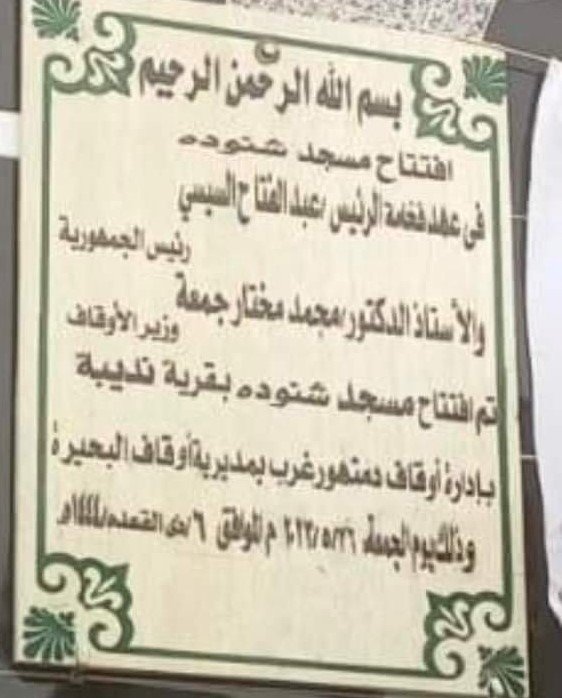 بسم الله الرحمن الرحيم
افتتاح مسجد شنوده
في عهد فخامة الرئيس/عبد الفتاح السيسي
رئيس الجمهورية
والأستاذ الدكتور/محمد مختار جمعة
وزير الأوقاف
تم افتتاح مسجد شنوده بقرية نديبة
بإدارة أوقاف دمنهور غرب بمديرية أوقاف البحيرة
وذلك يوم الجمعة ٢٠٢٣/٥/٢٦ م الموافق ٦/ذى القعده/١٤٤٤هـ